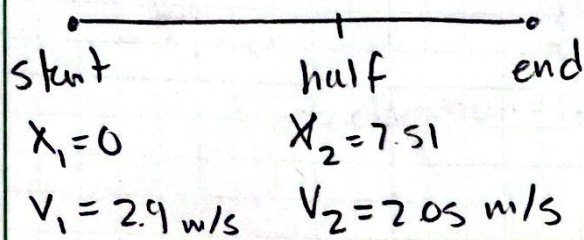 start half end
X₁=0 X₂=7.51
V₁=2.9 m/s V₂=2.05 m/s